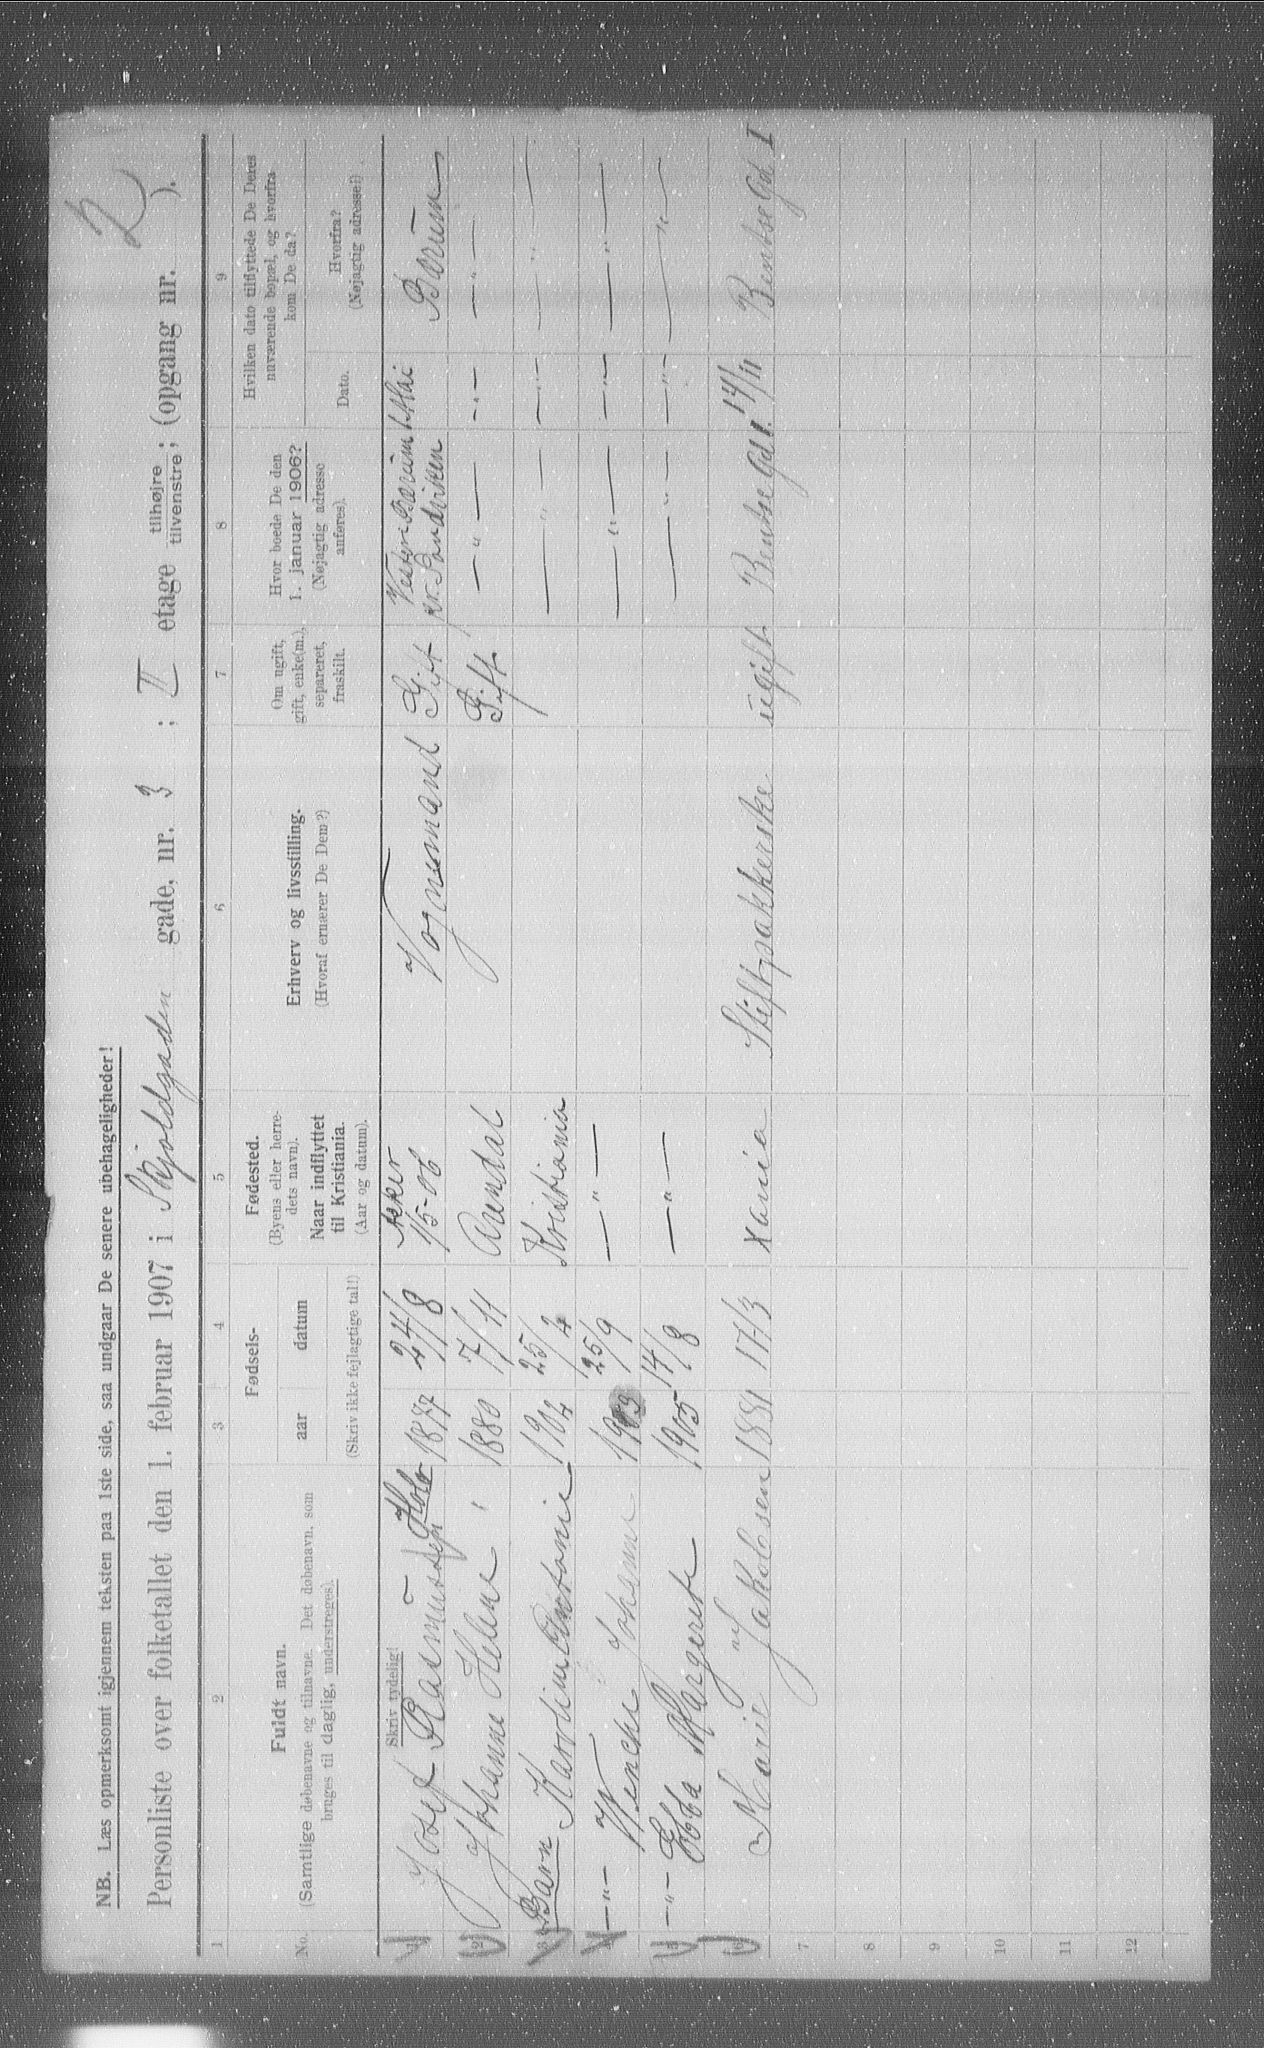 NB. Læs opmerksomt igjennem teksten paa 1ste side, saa undgaar De senere ubehageligheder!
Personliste over folketallet den 1. februar 1907 i Skjoldgaden gade, nr. 3 ; II etage tilhøjre tilvenstre ; (opgang nr. ).
1 2 3 4 5 6 7 8 9
No.
Fuldt navn.
(Samtlige døbenavne og tilnavne. Det døbenavn, som
bruges til daglig, understreges).
Fødsels-
aar datum
(Skriv ikke fejlagtige tal!)
Fødested.
(Byens eller herre-
dets navn).
Naar indflyttet
til Kristiania.
(Aar og datum).
Erhverv og livsstilling.
(Hvoraf ernærer De Dem?)
Om ugift,
gift, enke(m.),
separeret,
fraskilt.
Hvor boede De den
1. januar 1906?
(Nøjagtig adresse
anføres).
Hvilken dato tilflyttede De Deres
nuværende bopæl, og hvorfra
kom De da?
Dato.
Hvorfra?
(Nøjagtig adresse!)
Skriv tydelig!
1 Josef Rasmussen Holo 1877 24/8 Aker 1/5-06 Vognmand Gift Vestre Bærum pr. Sandviken 1 Mai Bærum
2 Johanne Helene " 1880 7/11 Arendal Gift — " — — " — — " —
3 Barn Karoline Antonie 1902 25/2 Kristiania — " — — " — — " —
4 — " — Wenche Johanne 1903 25/9 — " — — " — — " — — " —
5 — " — Ebba Margrete 1905 14/8 — " — — " — — " — — " —
6 Marie Jakobsen 1881 17/3 Xania Stiftpakkerske ugift Bentse Gd 1. 14/11 Bentse Gd I
7
8
9
10
11
12